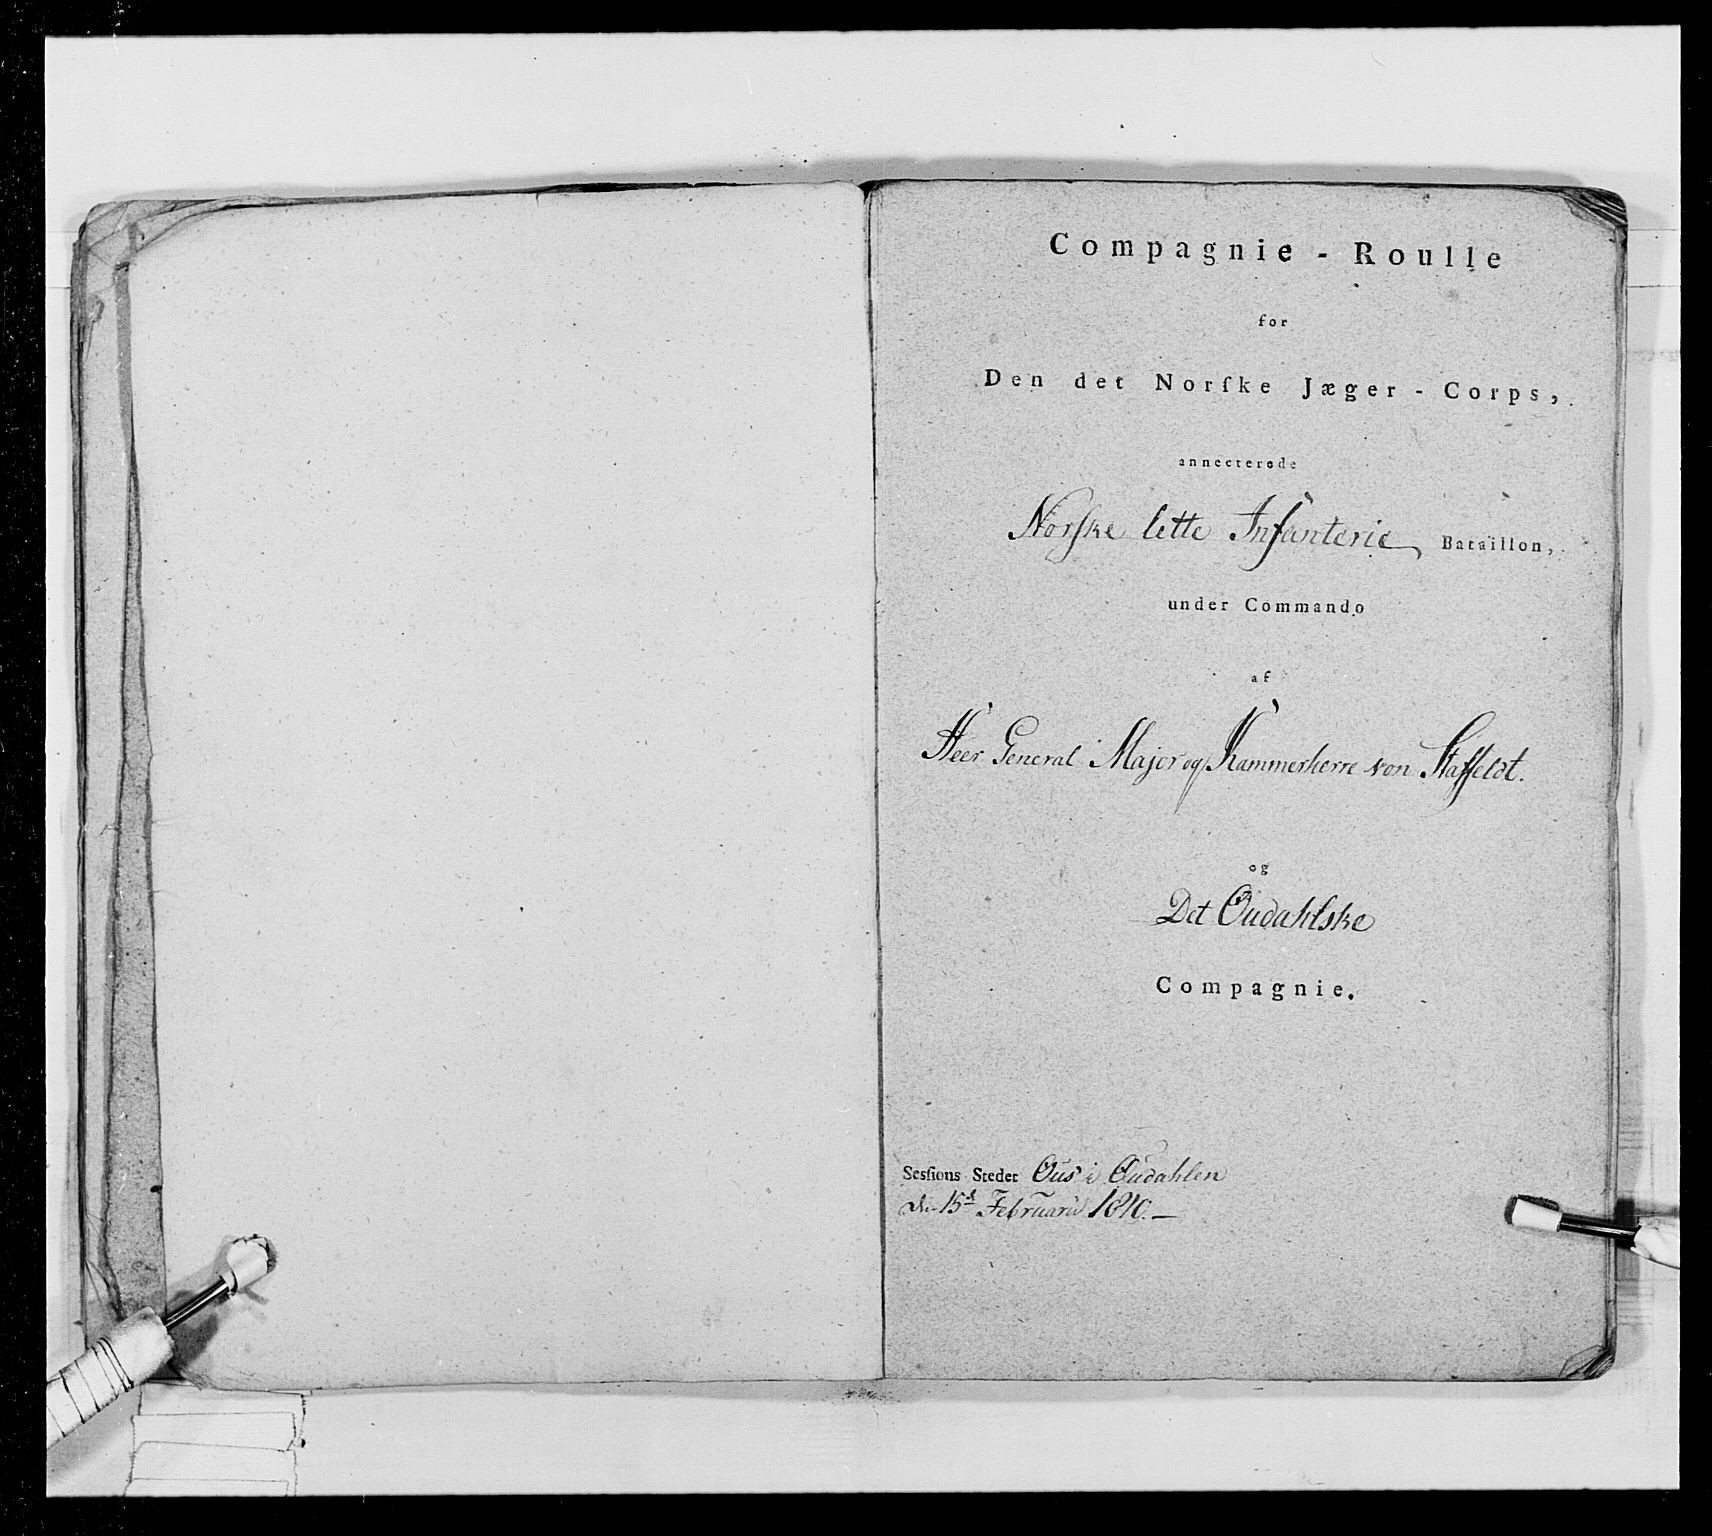 Compagnie - Roulle
for
Den det Norſke Jæger - Corps,
annecterede
Norſke lette Infanterie Bataillon,
under Commando
af
Herr General Major og Kammerherre von Staffeldt.
og
Det Oudahlske
Compagnie.
Sesſions Stedet Ous i Oudahlen
d. 15d Februarii 1810.